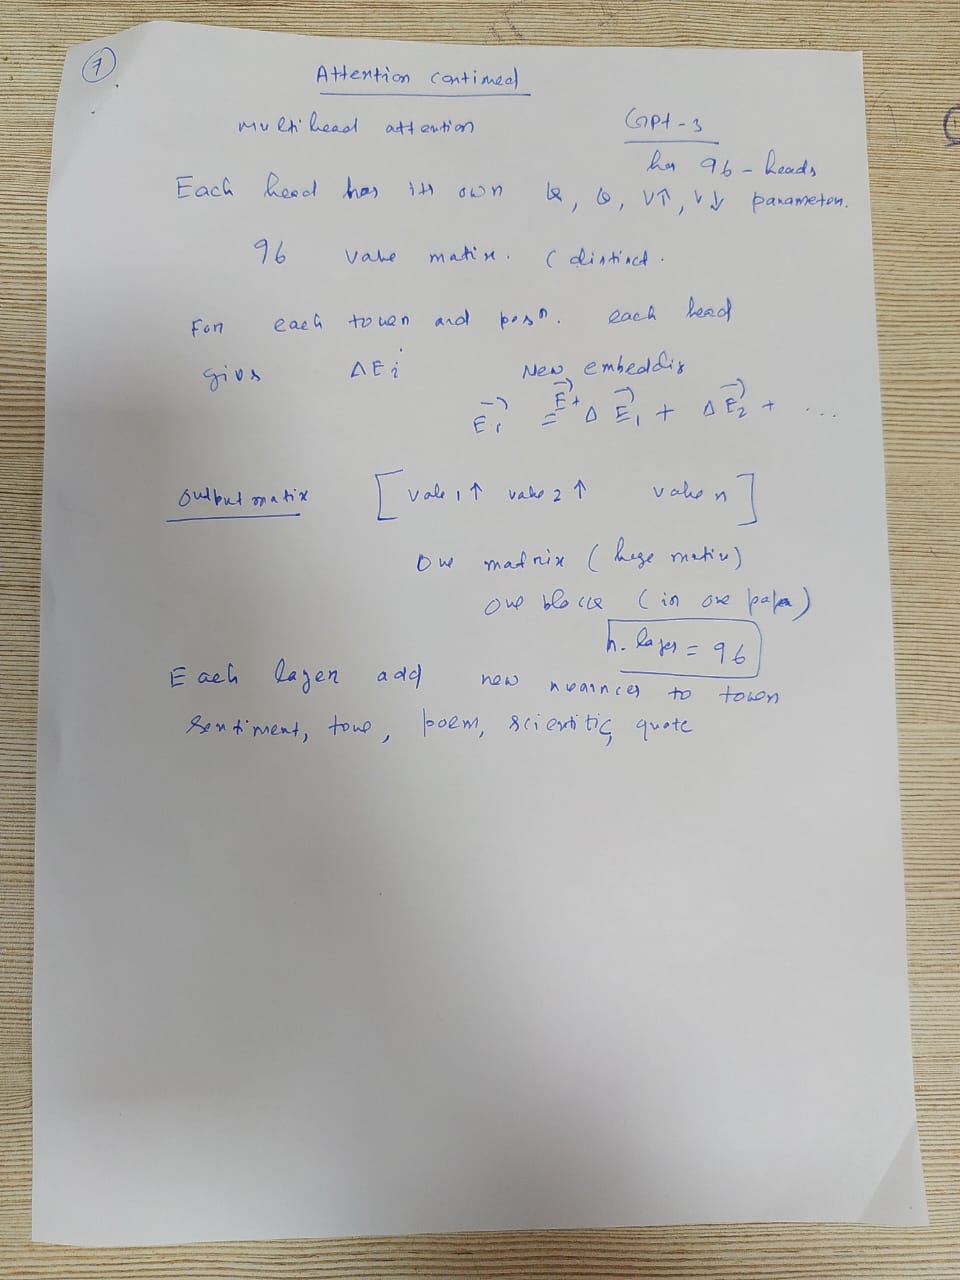 7
Attention continued
Multihead attention
GPT-3
has 96 - heads
Each head has its own Q, Q, V↑, V↓ parameters.
96 value matrix. (distinct.
For each token and posn. each head
gives ΔEi
New embeddig
E→i = E→ + ΔE→1 + ΔE→2 + ...
Output matrix [value 1↑ value 2↑ value n]
One matrix (huge matrix)
one block (in one paper)
n. layer = 96
Each layer add new nuances to token
Sentiment, tone, poem, scientific, quote